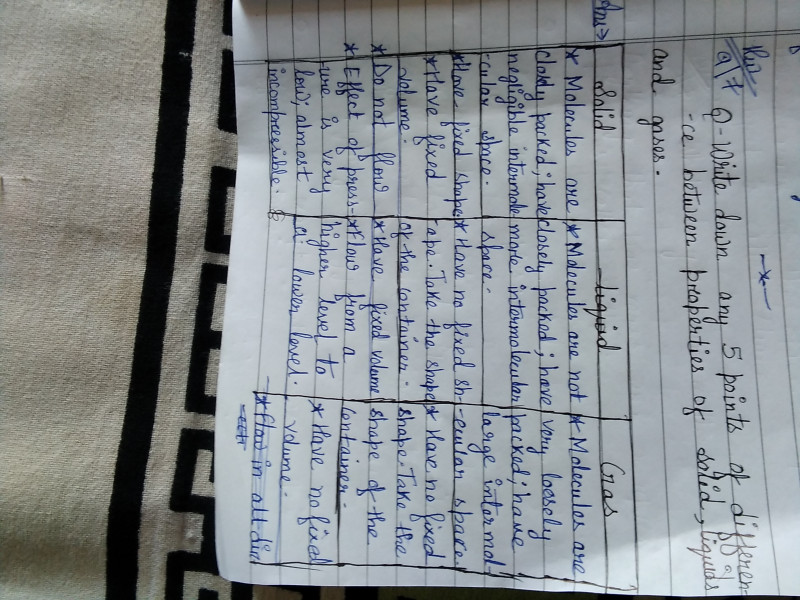 —*—
Q- Write down any 5 points of differen-
-ce between properties of solid, liquids
and gases.
Ans→
Solid
* Molecules are
closly packed; have
negligible intermole
-cular space.
* Have fixed shape
* Have fixed
volume.
* Do not flow
* Effect of press-
ure is very
low; almost
incompressible.
Liquid
* Molecules are not
closely packed; have
more intermolecular
space.
* Have no fixed sh-
ape. Take the shape
of the container.
* Have fixed volume
* Flow from a
higher level to
a lower level.
Gas
* Molecules are
very loosely
packed; have
large intermol-
-ecular space.
* Have no fixed
shape. Take the
shape of the
container.
* Have no fixed
volume.
* Flow in all dir